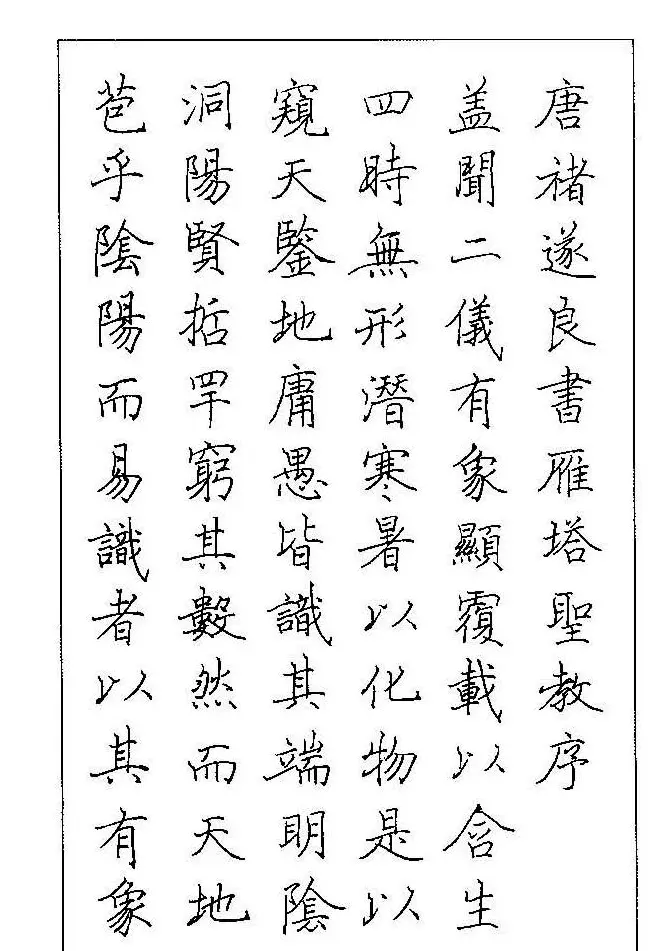 唐褚遂良書雁塔聖教序
盖聞二儀有象顯覆載以含生
四時無形潛寒暑以化物是以
窺天鑒地庸愚皆識其端明陰
洞陽賢哲罕窮其數然而天地
苞乎陰陽而易識者以其有象